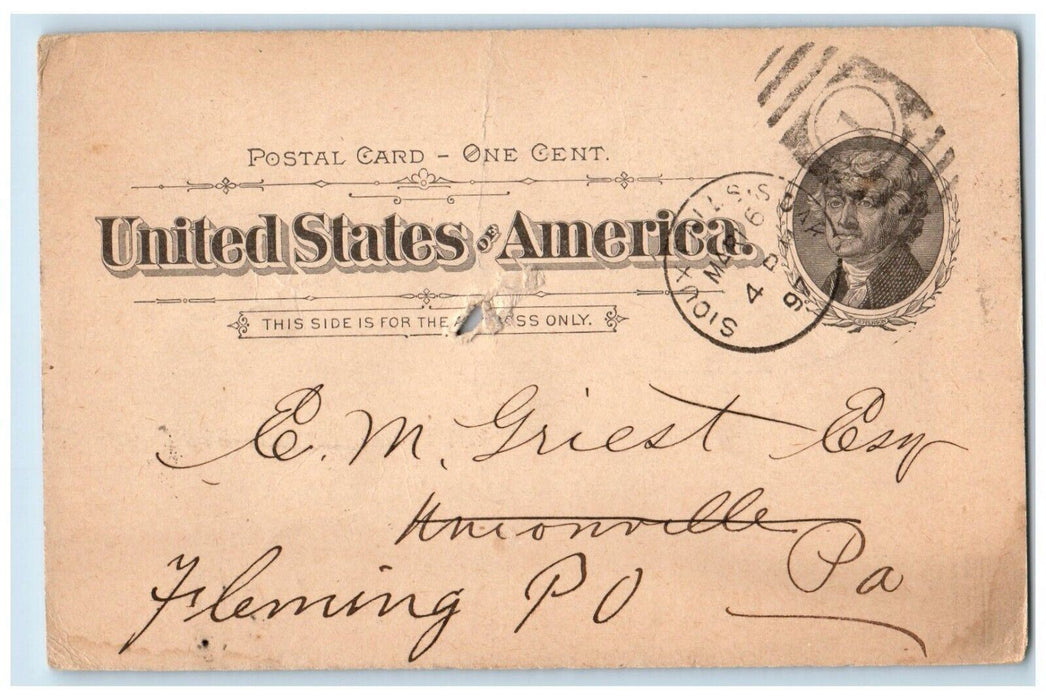 POSTAL CARD - ONE CENT.
United States OF America.
THIS SIDE IS FOR THE SS ONLY.
SIOUX FALLS S.
MAR 6
4 P
96
1
E. M. Griest Esq
Unionville
Fleming P O Pa